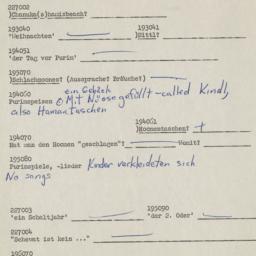 227002
)Chanuke(s)hauizbesch?
193040 193041
'Weihnachten' )Nittl?
194051
'der Tag vor Purim'
195070
)Schlachmones? (Aussprache? Bräuche?)
194060 ein Gebäck
Purimspeisen Mit Nüsse gefüllt - called Kindl,
also Hamantaschen
194061
)Homentaschen? +
194070
Hat man den Homen "geschlagen"? Womit?
195080
Purimspiele, -lieder Kinder verkleideten sich
No songs
227003 195090
'ein Schaltjahr' 'der 2. Oder'
227004
"Scheunt ist kein ..."
195070